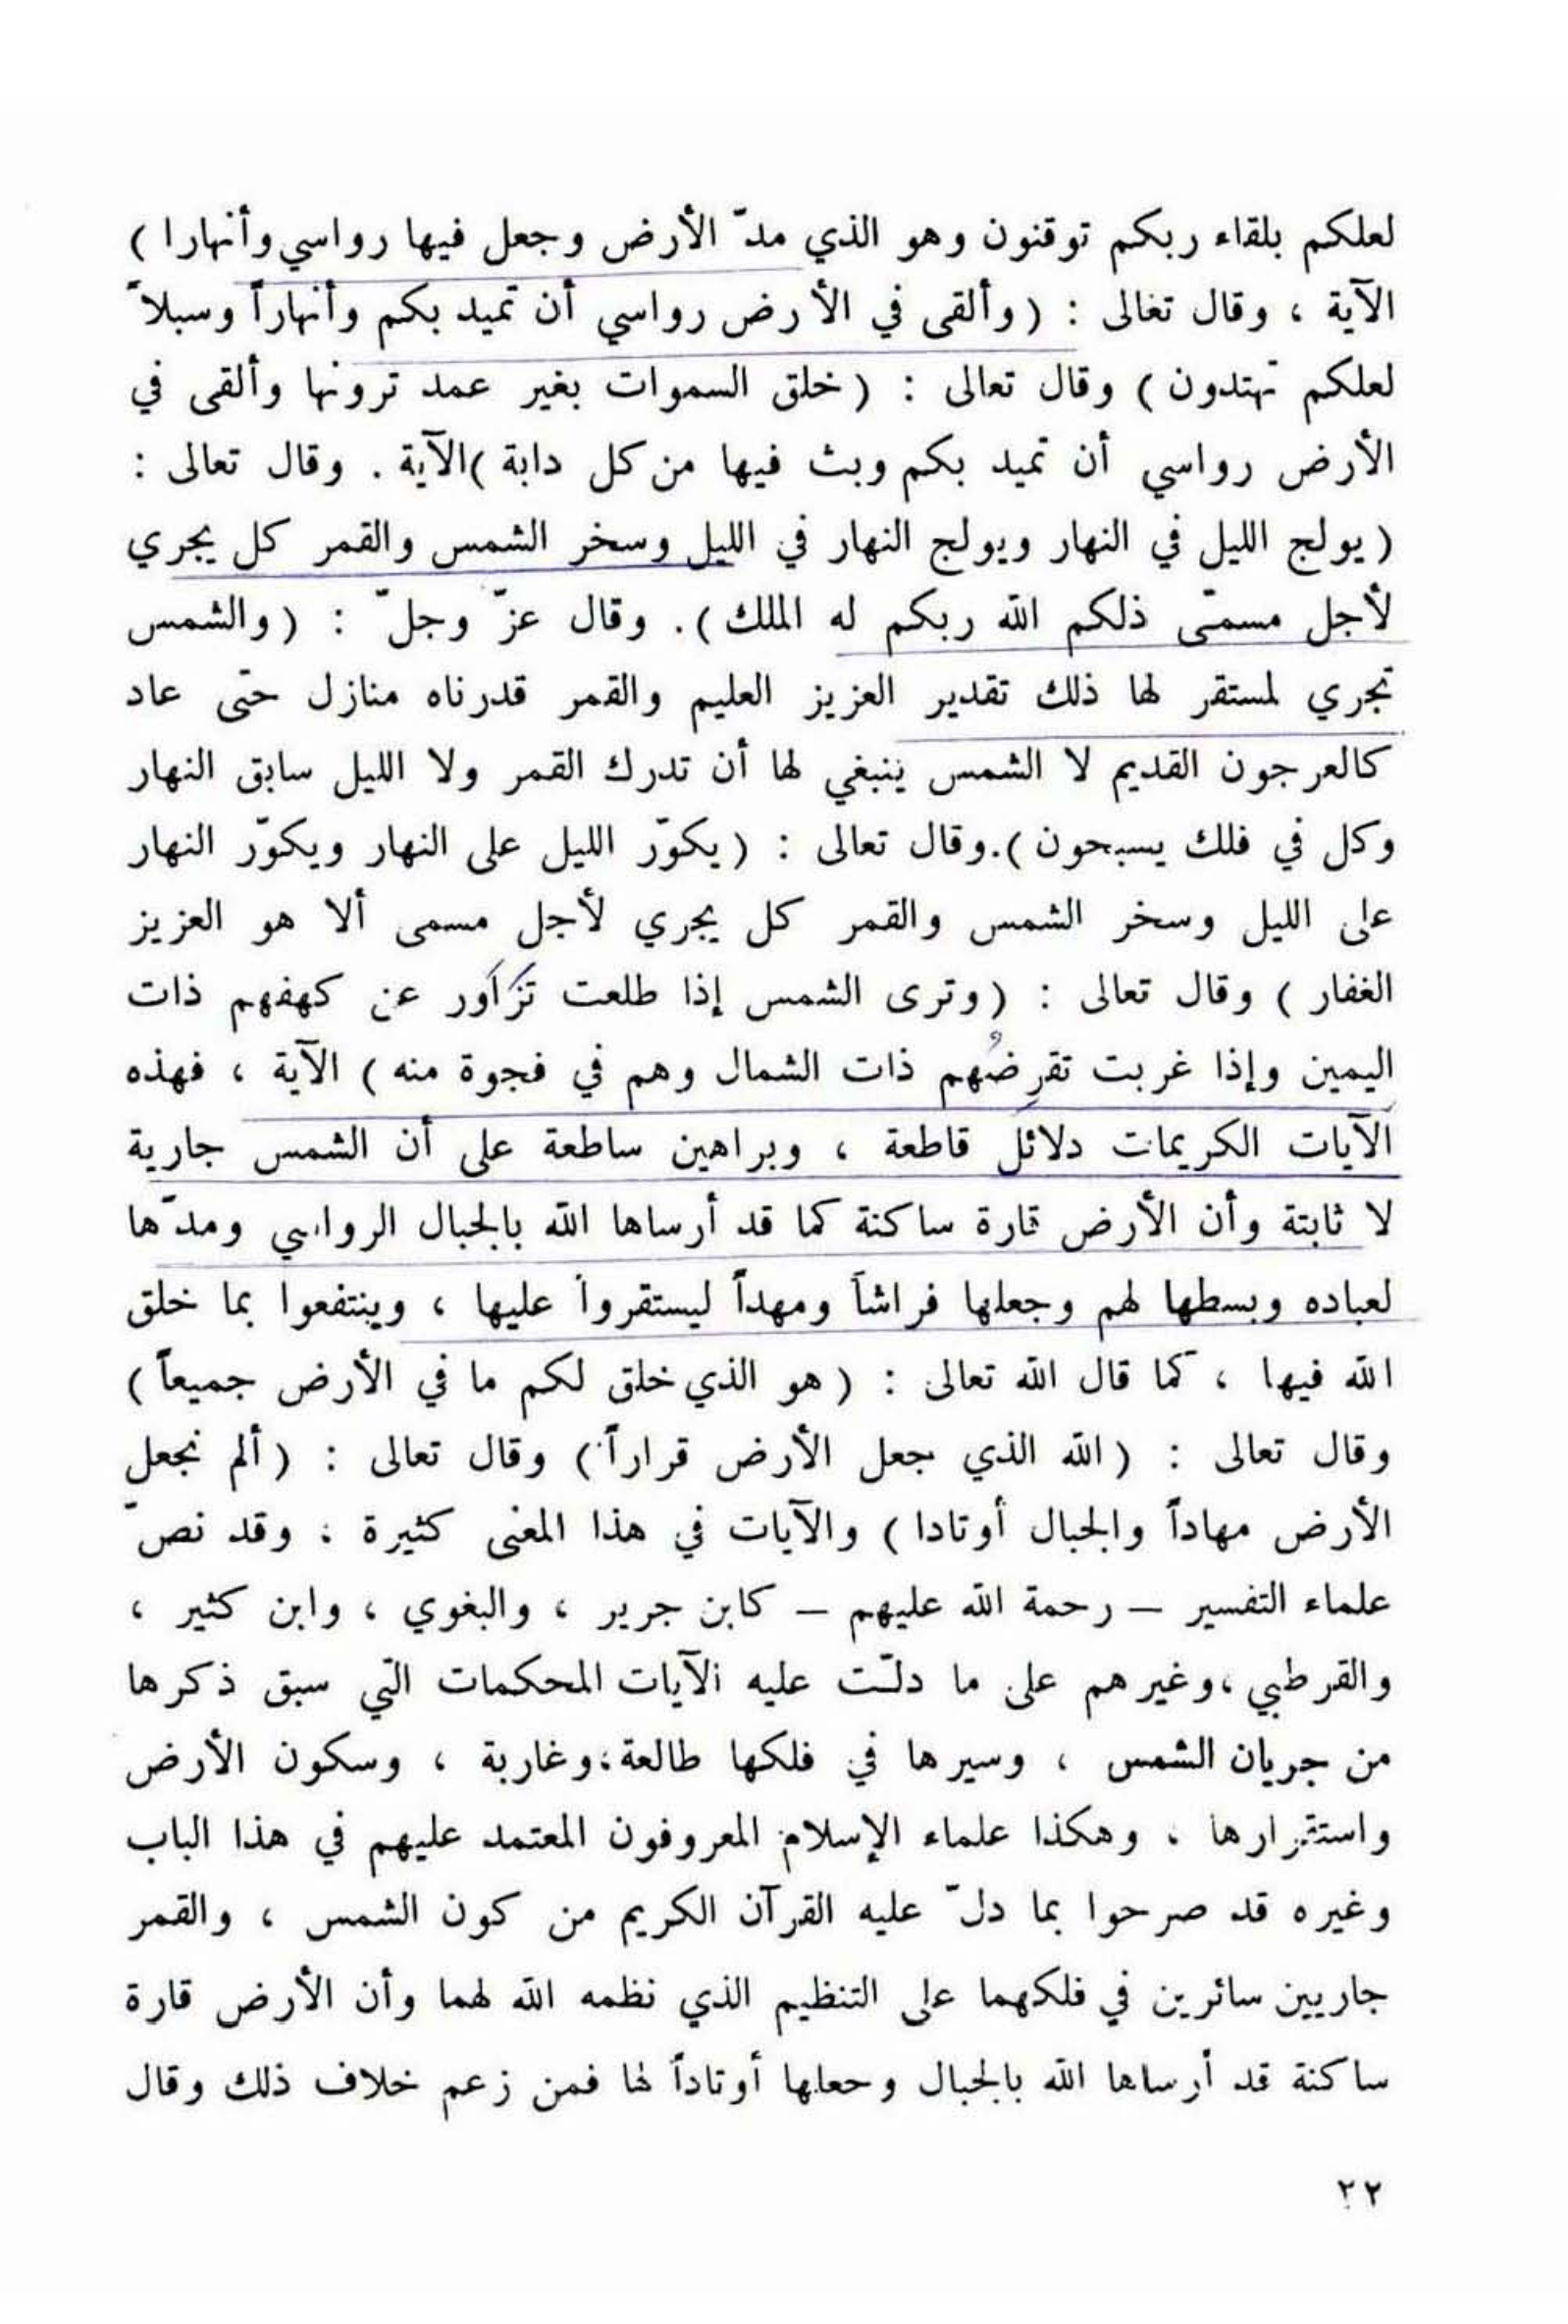 لعلكم بلقاء ربكم توقنون وهو الذي مدّ الأرض وجعل فيها رواسي وأنهارا )
الآية ، وقال تعالى : ( وألقى في الأرض رواسي أن تميد بكم وأنهاراً وسبلاً
لعلكم تهتدون ) وقال تعالى : ( خلق السموات بغير عمد ترونها وألقى في
الأرض رواسي أن تميد بكم وبث فيها من كل دابة )الآية . وقال تعالى :
( يولج الليل في النهار ويولج النهار في الليل وسخر الشمس والقمر كل يجري
لأجل مسمّى ذلكم الله ربكم له الملك ). وقال عزّ وجلّ : ( والشمس
تجري لمستقر لها ذلك تقدير العزيز العليم والقمر قدرناه منازل حتى عاد
كالعرجون القديم لا الشمس ينبغي لها أن تدرك القمر ولا الليل سابق النهار
وكل في فلك يسبحون ).وقال تعالى : ( يكوّر الليل على النهار ويكوّر النهار
على الليل وسخر الشمس والقمر كل يجري لأجل مسمى ألا هو العزيز
الغفار ) وقال تعالى : ( وترى الشمس إذا طلعت تَزَاَور عن كهفهم ذات
اليمين وإذا غربت تقرِضُهم ذات الشمال وهم في فجوة منه ) الآية ، فهذه
الآيات الكريمات دلائل قاطعة ، وبراهين ساطعة على أن الشمس جارية
لا ثابتة وأن الأرض قارة ساكنة كما قد أرساها الله بالجبال الرواسي ومدّها
لعباده وبسطها لهم وجعلها فراشاً ومهداً ليستقروا عليها ، وينتفعوا بما خلق
الله فيها ، كما قال الله تعالى : ( هو الذي خلق لكم ما في الأرض جميعاً )
وقال تعالى : ( الله الذي جعل الأرض قراراً ) وقال تعالى : ( ألم نجعل
الأرض مهاداً والجبال أوتادا ) والآيات في هذا المعنى كثيرة ، وقد نصّ
علماء التفسير – رحمة الله عليهم – كابن جرير ، والبغوي ، وابن كثير ،
والقرطبي ،وغيرهم على ما دلّت عليه الآيات المحكمات التي سبق ذكرها
من جريان الشمس ، وسيرها في فلكها طالعة،وغاربة ، وسكون الأرض
واستقرارها ، وهكذا علماء الإسلام المعروفون المعتمد عليهم في هذا الباب
وغيره قد صرحوا بما دلّ عليه القرآن الكريم من كون الشمس ، والقمر
جاريين سائرين في فلكهما على التنظيم الذي نظمه الله لهما وأن الأرض قارة
ساكنة قد أرساها الله بالجبال وجعلها أوتاداً لها فمن زعم خلاف ذلك وقال
٢٢